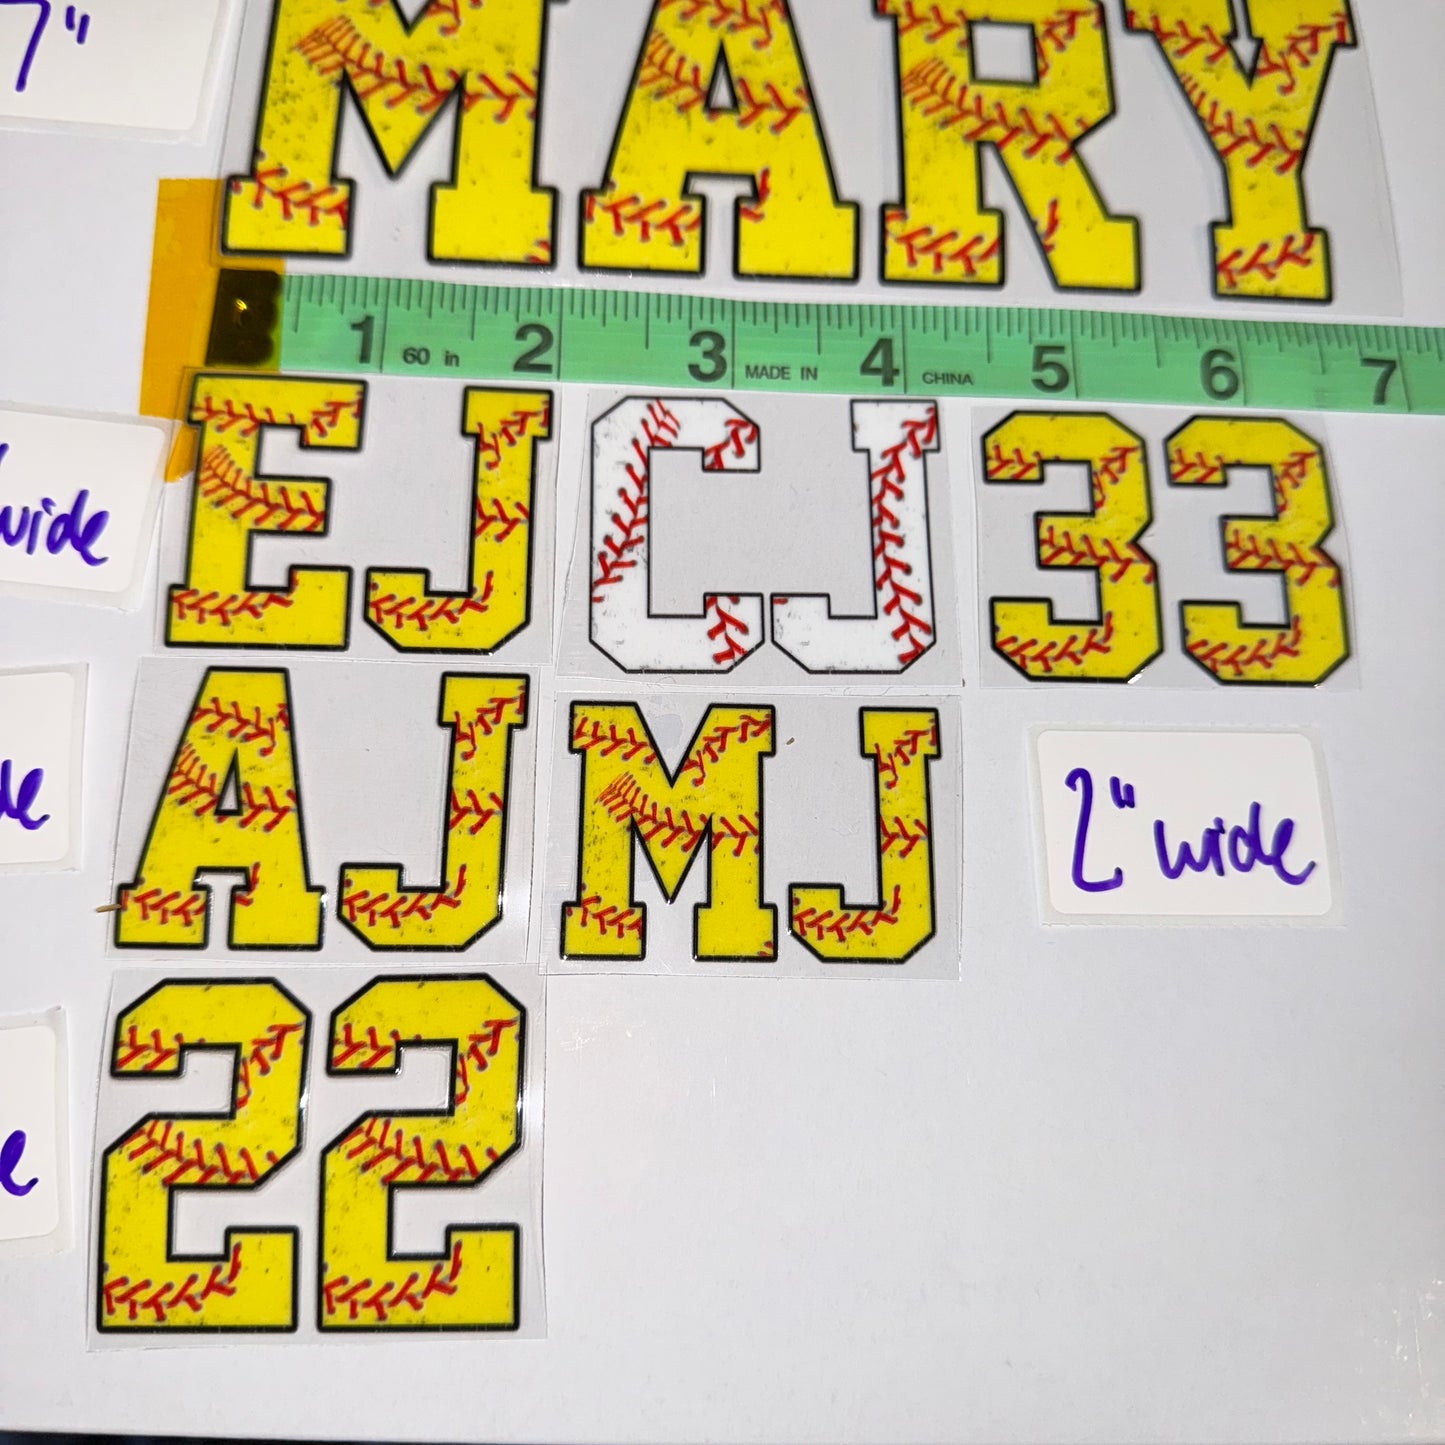 7"
MARY
1 60 in 2 3 MADE IN 4 CHINA 5 6 7
EJ CJ 33
wide
AJ MJ
2" wide
22